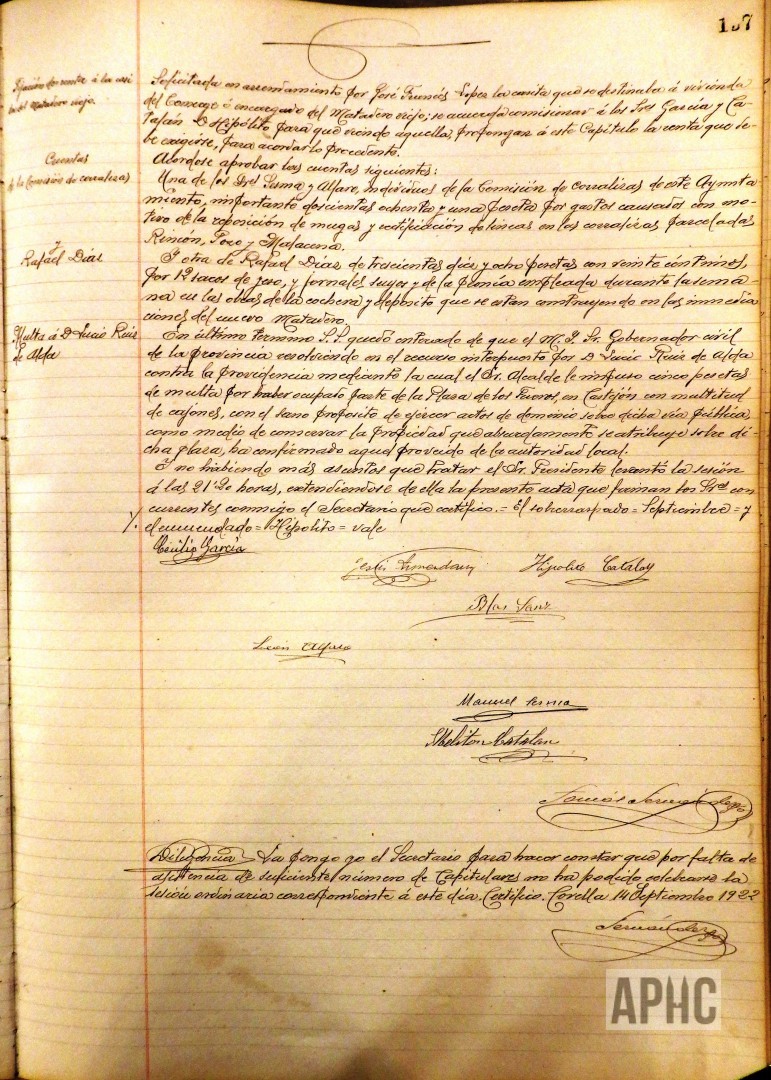 157
Fijación de renta á la casi
ta del Matadero viejo.
Solicitada en arrendamiento por José Francés López la casita que se destinaba á vivienda
del Conserje ó encargado del Matadero viejo; se acuerda comisionar á los Sres García y Ca-
talán D. Hipólito para que viendo aquella, propongan á este Capítulo la renta que de-
be exigirse, para acordar lo procedente.
Cuentas
de la Comisión de corralizas
Acordose aprobar las cuentas siguientes:
Una de los Sres Sesma y Alfaro, individuos de la Comisión de corralizas de este Ayunta-
miento, importante doscientas ochenta y una peseta por gastos causados con mo-
tivo de la reposición de mugas y rectificación de lineas en las corralizas parceladas
Rincón, Pozo y
y
Rafael Días
Y otra de Rafael Días de trescientas diez y ocho pesetas con veinte céntimos,
por 12 sacos de yeso, y jornales suyos y de la peonía empleada durante la sema-
na en las obras de la cochera y depósito que se estan construyendo en las inmedia-
ciones del nuevo Matadero.
Multa á D Lucio Ruiz
de Alda
En último termino S.S. quedó enterado de que el M. I. Sr. Gobernador civil
de la provincia resolviendo en el recurso interpuesto por D Lucio Ruiz de Alda
contra la providencia mediante la cual el Sr. Alcalde le impuso cinco pesetas
de multa por haber ocupado parte de la Plaza de los Fueros, en Castejón con multitud
de cajones, con el vano propósito de ejercer actos de dominio sobre dicha vía pública,
como medio de conservar la propiedad que absurdamente se atribuye sobre di-
cha plaza, ha confirmado aquel proveido de la autoridad local.
Y no habiendo más asuntos que tratar el Sr. Presidente levantó la sesión
á las 21'20 horas, extendiéndose de ella la presente acta que firman los Sres con-
currentes conmigo el Secretario que certifico.= El sobrerraspado = Septiembre = y
el enmendado = Hipólito = vale
García
Hipolito Catalán
Blas Sanz
León Alfaro
Manuel Sesma
Meliton Catalan
Tomás
Diligencia La pongo yo el Secretario para hacer constar que por falta de
asistencia de suficiente número de Capitulares no ha podido celebrarse la
sesión ordinaria correspondiente á este día. Certifico. Corella 14 Septiembre 1922
APHC